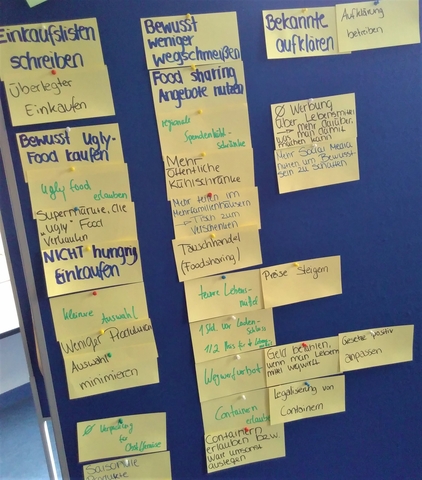 Einkaufslisten
schreiben
Überlegter
Einkaufen
Bewusst Ugly-
Food kaufen
Ugly Food
erlauben
Supermärkte, die
"ugly" Food
verkaufen
NICHT hungrig
Einkaufen
kleinere Auswahl
Weniger Produzieren
Auswahl
minimieren
Verpackung
für Obst/Gemüse
Saisonale
Produkte
Bewusst
weniger
wegschmeißen
Food sharing
Angebote nutzen
regionale
Spendenkühl-
schränke
Mehr
öffentliche
Kühlschränke
Mehr teilen im
Mehrfamilienhäusern
→ Tisch zum
Verschenken
Tauschhandel
(Foodsharing)
teure Lebens-
mittel
1 Std. vor Laden-
schluss
1/2 Preis
Wegwerfverbot
Containern
erlauben
Containern
erlauben bzw.
Ware umsonst
auslegen
Bekannte
aufklären
Aufklärung
betreiben
Ø Werbung
über Lebensmittel
→ mehr darüber,
was man damit
machen kann
Mehr Social Media
nutzen um Bewusst-
sein zu schaffen
Preise steigern
Geld bezahlen,
wenn man Lebensm.
wegwirft
Gesetze positiv
anpassen
Legalisierung von
Containern